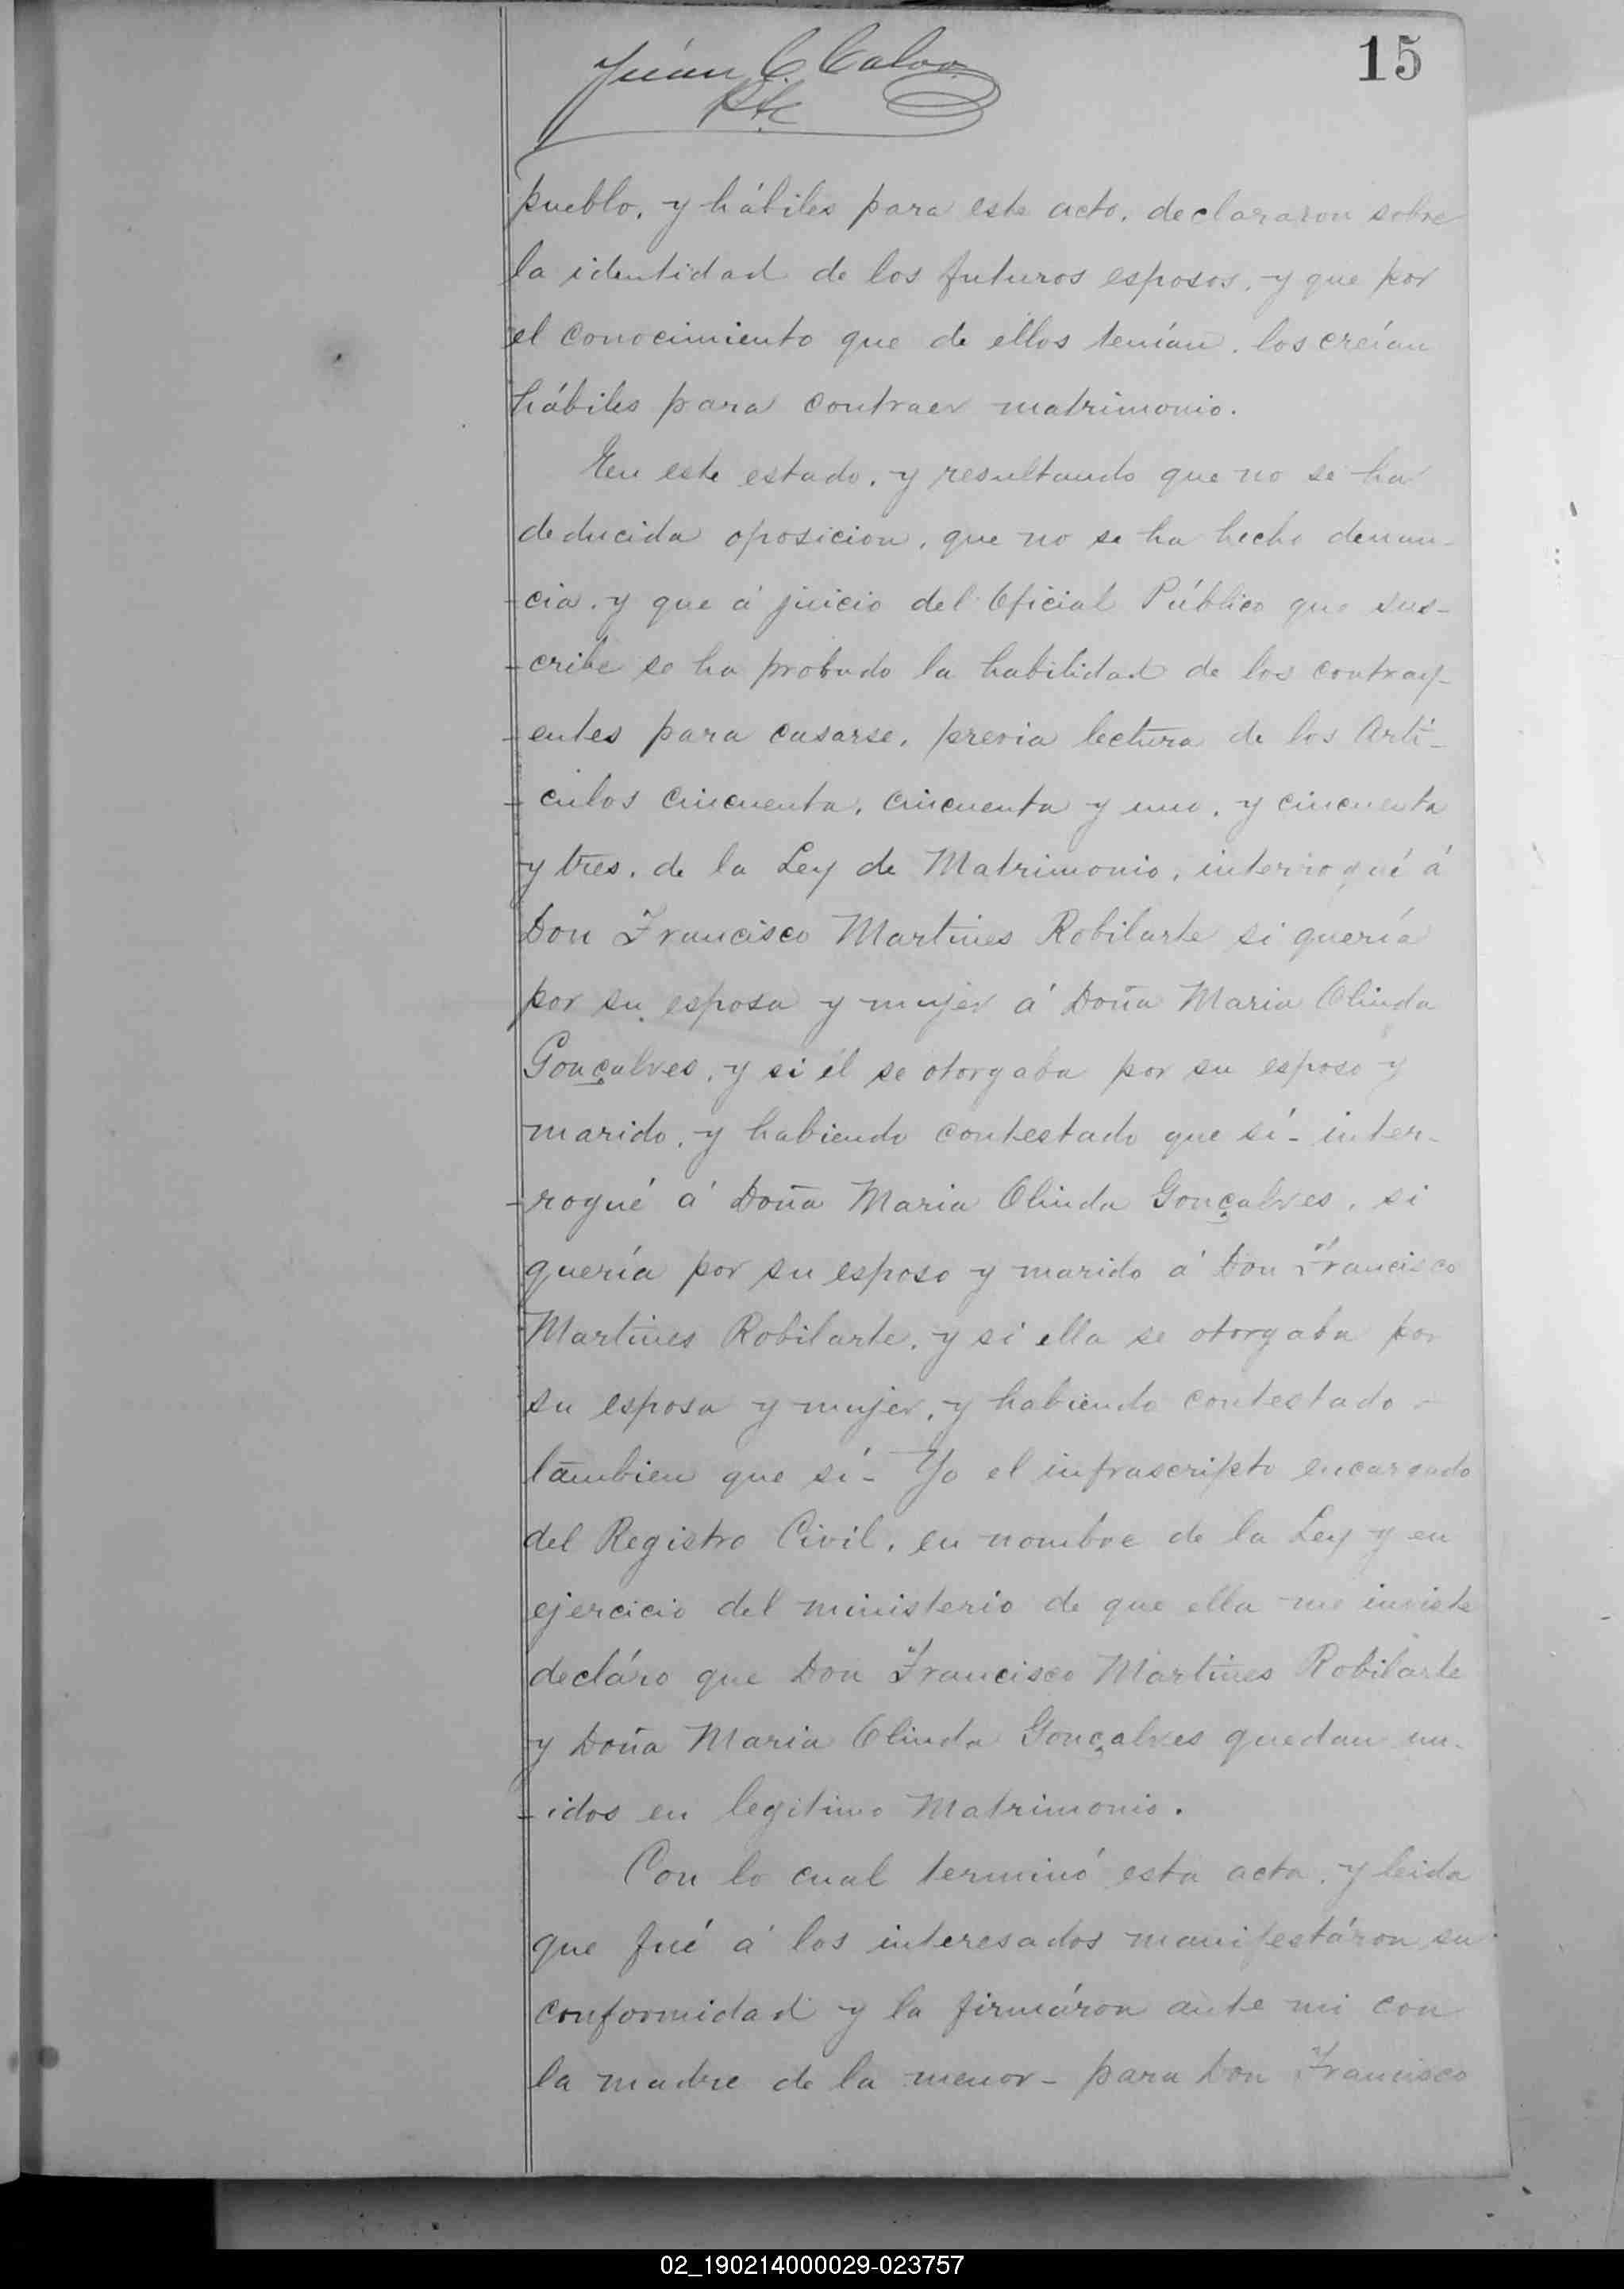 15
Juán C. Calvo
Pte
pueblo, y hábiles para este acto, declararon sobre
la identidad de los futuros esposos, y que por
el conocimiento que de ellos tenían, los creían
hábiles para contraer matrimonio.
En este estado, y resultando que no se ha
deducida oposicion, que no se ha hecho denun-
-cia, y que á juicio del Oficial Público que sus-
-cribe se ha probado la habilidad de los contray-
-entes para casarse, previa lectura de los Artí-
-culos cincuenta, cincuenta y uno, y cincuenta
y tres, de la Ley de Matrimonio, interrogué á
Don Francisco Martines Robilarte si quería
por su esposa y mujer á Doña Maria Olinda
Gonçalves, y si él se otorgaba por su esposo y
marido, y habiendo contestado que sí - inter-
-rogué á Doña Maria Olinda Gonçalves, si
quería por su esposo y marido á Don Francisco
Martines Robilarte, y si ella se otorgaba por
su esposa y mujer, y habiendo contestado -
tambien que sí - Yo el infrascripto encargado
del Registro Civil, en nombre de la Ley y en
ejercicio del ministerio de que ella me inviste
decláro que Don Francisco Martines Robilarte
y Doña Maria Olinda Gonçalves quedan un-
-idos en legitimo Matrimonio.
Con lo cual terminó esta acta, y leida
que fué á los interesados manifestáron su
conformidad y la firmáron ante mi con
la madre de la menor - para Don Francisco
02_190214000029-023757